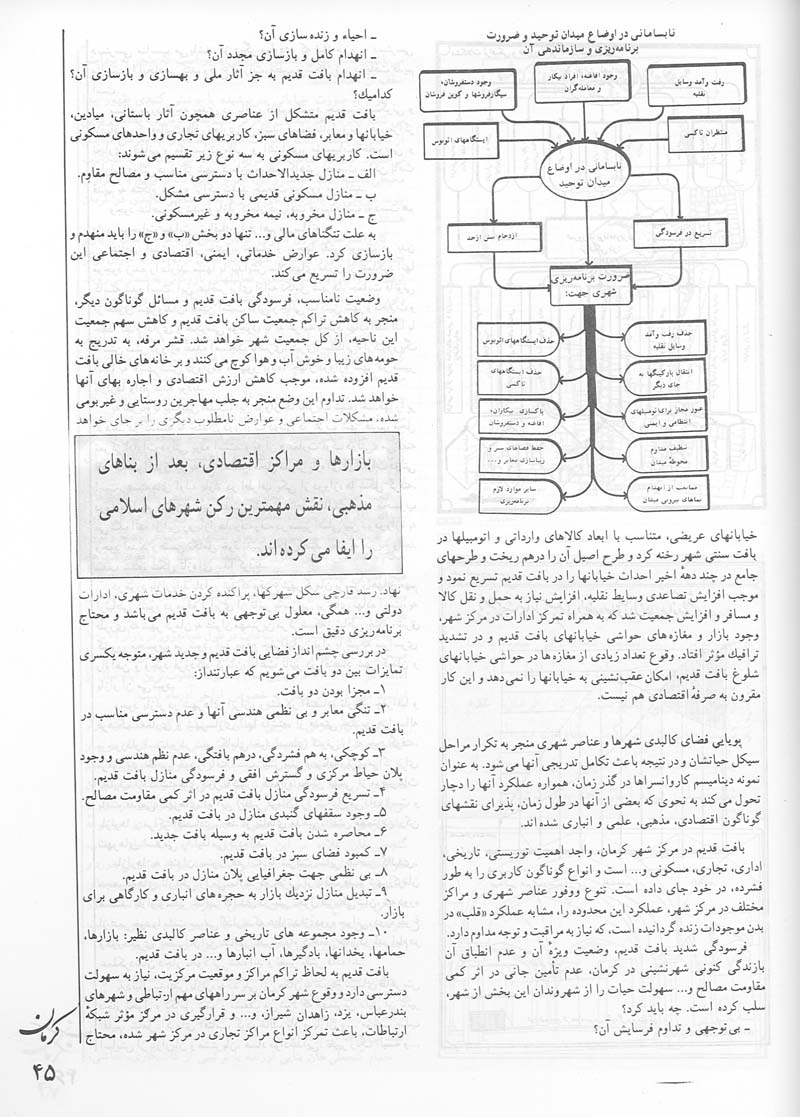 نابسامانی در اوضاع میدان توحید و ضرورت
برنامه‌ریزی و سازماندهی آن
رفت وآمد وسایل
نقلیه
وجود افاغنه، افراد بیکار
و معامله‌گران
وجود دستفروشان،
سیگارفروشها و کوپن فروشان
منتظران تاکسی
ایستگاههای اتوبوس
نابسامانی در اوضاع
میدان توحید
تسریع در فرسودگی
ازدحام بیش ازحد
ضرورت برنامه‌ریزی
شهری جهت:
حذف رفت وآمد
وسایل نقلیه
حذف ایستگاههای اتوبوس
انتقال پارکینگها به
جای دیگر
حذف ایستگاههای
تاکسی
عبور مجاز برای تومبیلهای
انتظامی و ایمنی
پاکسازی بیکاران،
افاغنه و دستفروشان
تنظیف مداوم
محوطهٔ میدان
حفظ فضاهای سبز و
زیباسازی معابر و...
ممانعت از انهدام
نماهای بیرونی میدان
سایر موارد لازم
برنامه‌ریزی
خیابانهای عریضی، متناسب با ابعاد کالاهای وارداتی و اتومبیلها در
بافت سنتی شهر رخنه کرد و طرح اصیل آن را درهم ریخت و طرحهای
جامع در چند دههٔ اخیر احداث خیابانها را در بافت قدیم تسریع نمود و
موجب افزایش تصاعدی وسایط نقلیه، افزایش نیاز به حمل و نقل کالا
و مسافر و افزایش جمعیت شد که به همراه تمرکز ادارات در مرکز شهر،
وجود بازار و مغازه‌های حواشی خیابانهای بافت قدیم و در تشدید
ترافیک مؤثر افتاد. وقوع تعداد زیادی از مغازه‌ها در حواشی خیابانهای
شلوغ بافت قدیم، امکان عقب‌نشینی به خیابانها را نمی‌دهد و این کار
مقرون به صرفهٔ اقتصادی هم نیست.
پویایی فضای کالبدی شهرها و عناصر شهری منجر به تکرار مراحل
سیکل حیاتشان و در نتیجه باعث تکامل تدریجی آنها می‌شود. به عنوان
نمونه دینامیسم کاروانسراها در گذر زمان، همواره عملکرد آنها را دچار
تحول می‌کند به نحوی که بعضی از آنها در طول زمان، پذیرای نقشهای
گوناگون اقتصادی، مذهبی، علمی و انباری شده‌اند.
بافت قدیم در مرکز شهر کرمان، واجد اهمیت توریستی، تاریخی،
اداری، تجاری، مسکونی و... است و انواع گوناگون کاربری را به طور
فشرده، در خود جای داده است. تنوع ووفور عناصر شهری و مراکز
مختلف در مرکز شهر، عملکرد این محدوده را، مشابه عملکرد «قلب» در
بدن موجودات زنده گردانیده است، که نیاز به مراقبت و توجه مداوم دارد.
فرسودگی شدید بافت قدیم، وضعیت ویژهٔ آن و عدم انطباق آن
بازندگی کنونی شهرنشینی در کرمان، عدم تأمین جانی در اثر کمی
مقاومت مصالح و... سهولت حیات را از شهروندان این بخش از شهر،
سلب کرده است. چه باید کرد؟
ـ بی‌توجهی و تداوم فرسایش آن؟
ـ احیاء و زنده سازی آن؟
ـ انهدام کامل و بازسازی مجدد آن؟
ـ انهدام بافت قدیم به جز آثار ملی و بهسازی و بازسازی آن؟
کدامیک؟
بافت قدیم متشکل از عناصری همچون آثار باستانی، میادین،
خیابانها و معابر، فضاهای سبز، کاربریهای تجاری و واحدهای مسکونی
است. کاربریهای مسکونی به سه نوع زیر تقسیم می‌شوند:
الف ـ منازل جدیدالاحداث با دسترسی مناسب و مصالح مقاوم.
ب ـ منازل مسکونی قدیمی با دسترسی مشکل.
ج ـ منازل مخروبه، نیمه مخروبه و غیرمسکونی.
به علت تنگناهای مالی و... تنها دو بخش «ب» و «ج» را باید منهدم و
بازسازی کرد. عوارض خدماتی، ایمنی، اقتصادی و اجتماعی این
ضرورت را تسریع می‌کند.
وضعیت نامناسب، فرسودگی بافت قدیم و مسائل گوناگون دیگر،
منجر به کاهش تراکم جمعیت ساکن بافت قدیم و کاهش سهم جمعیت
این ناحیه، از کل جمعیت شهر خواهد شد. قشر مرفه، به تدریج به
حومه‌های زیبا و خوش آب و هوا کوچ می‌کنند و بر خانه‌های خالی بافت
قدیم افزوده شده، موجب کاهش ارزش اقتصادی و اجاره بهای آنها
خواهد شد. تداوم این وضع منجر به جلب مهاجرین روستایی و غیربومی
شده، مشکلات اجتماعی و عوارض نامطلوب دیگری را بر جای خواهد
بازارها و مراکز اقتصادی، بعد از بناهای
مذهبی، نقش مهمترین رکن شهرهای اسلامی
را ایفا می‌کرده‌اند.
نهاد. رشد قارچی شکل شهرکها، پراکنده کردن خدمات شهری، ادارات
دولتی و... همگی، معلول بی‌توجهی به بافت قدیم می‌باشد و محتاج
برنامه‌ریزی دقیق است.
در بررسی چشم‌انداز فضایی بافت قدیم و جدید شهر، متوجه یکسری
تمایزات بین دو بافت می‌شویم که عبارتنداز:
۱ـ مجزا بودن دو بافت.
۲ـ تنگی معابر و بی نظمی هندسی آنها و عدم دسترسی مناسب در
بافت قدیم.
۳ـ کوچکی، به هم فشردگی، درهم بافتگی، عدم نظم هندسی و وجود
پلان حیاط مرکزی و گسترش افقی و فرسودگی منازل بافت قدیم.
۴ـ تسریع فرسودگی منازل بافت قدیم در اثر کمی مقاومت مصالح.
۵ـ وجود سقفهای گنبدی منازل در بافت قدیم.
۶ـ محاصره شدن بافت قدیم به وسیله بافت جدید.
۷ـ کمبود فضای سبز در بافت قدیم.
۸ـ بی نظمی جهت جغرافیایی پلان منازل در بافت قدیم.
۹ـ تبدیل منازل نزدیک بازار به حجره های انباری و کارگاهی برای
بازار.
۱۰ـ وجود مجموعه های تاریخی و عناصر کالبدی نظیر: بازارها،
حمامها، یخدانها، بادگیرها، آب انبارها و... در بافت قدیم.
بافت قدیم به لحاظ تراکم مراکز و موقعیت مرکزیت، نیاز به سهولت
دسترسی دارد و وقوع شهر کرمان بر سر راههای مهم ارتباطی و شهرهای
بندرعباس، یزد، زاهدان شیراز، و... و قرارگیری در مرکز مؤثر شبکهٔ
ارتباطات، باعث تمرکز انواع مراکز تجاری در مرکز شهر شده، محتاج
کرمان
۴۵